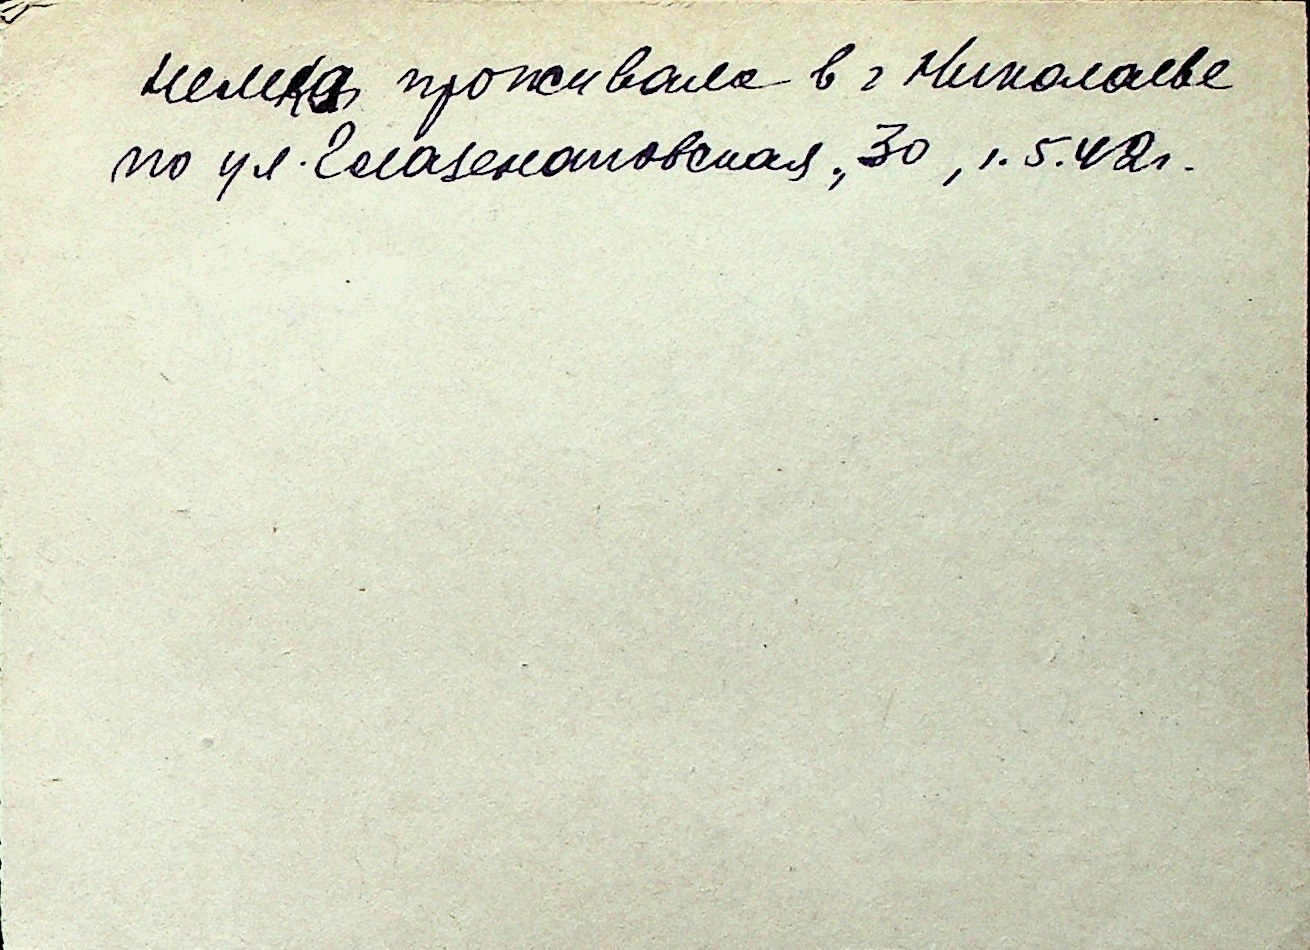 немка проживала в г Николаеве
по ул. Глазенаповская, 30, 1.5.42г.